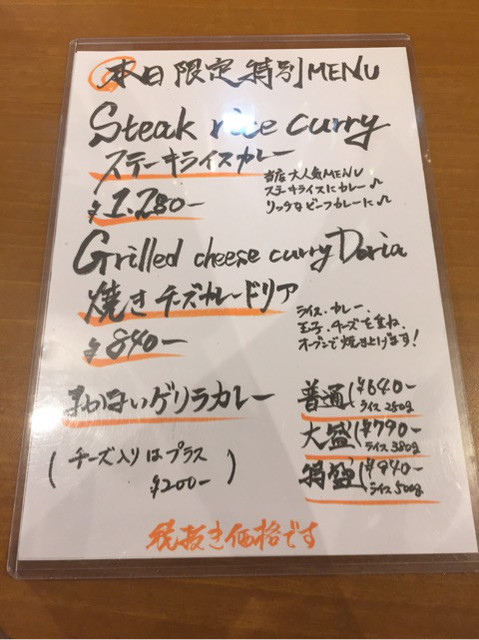 本日限定特別MENU
Steak rice curry
ステーキライスカレー
¥1.280-
当店大人気MENU
ステーキライスにカレー♪
リッチなビーフカレーに♪
Grilled cheese curry Doria
焼きチーズカレードリア
¥840-
ライス、カレー、
玉子、チーズを重ね、
オーブンで焼き上げます!
まかないゲリラカレー
(チーズ入りはプラス
¥200-)
普通(¥640-
ライス250g
大盛(¥790-
ライス380g
特盛(¥940-
ライス500g
税抜き価格です